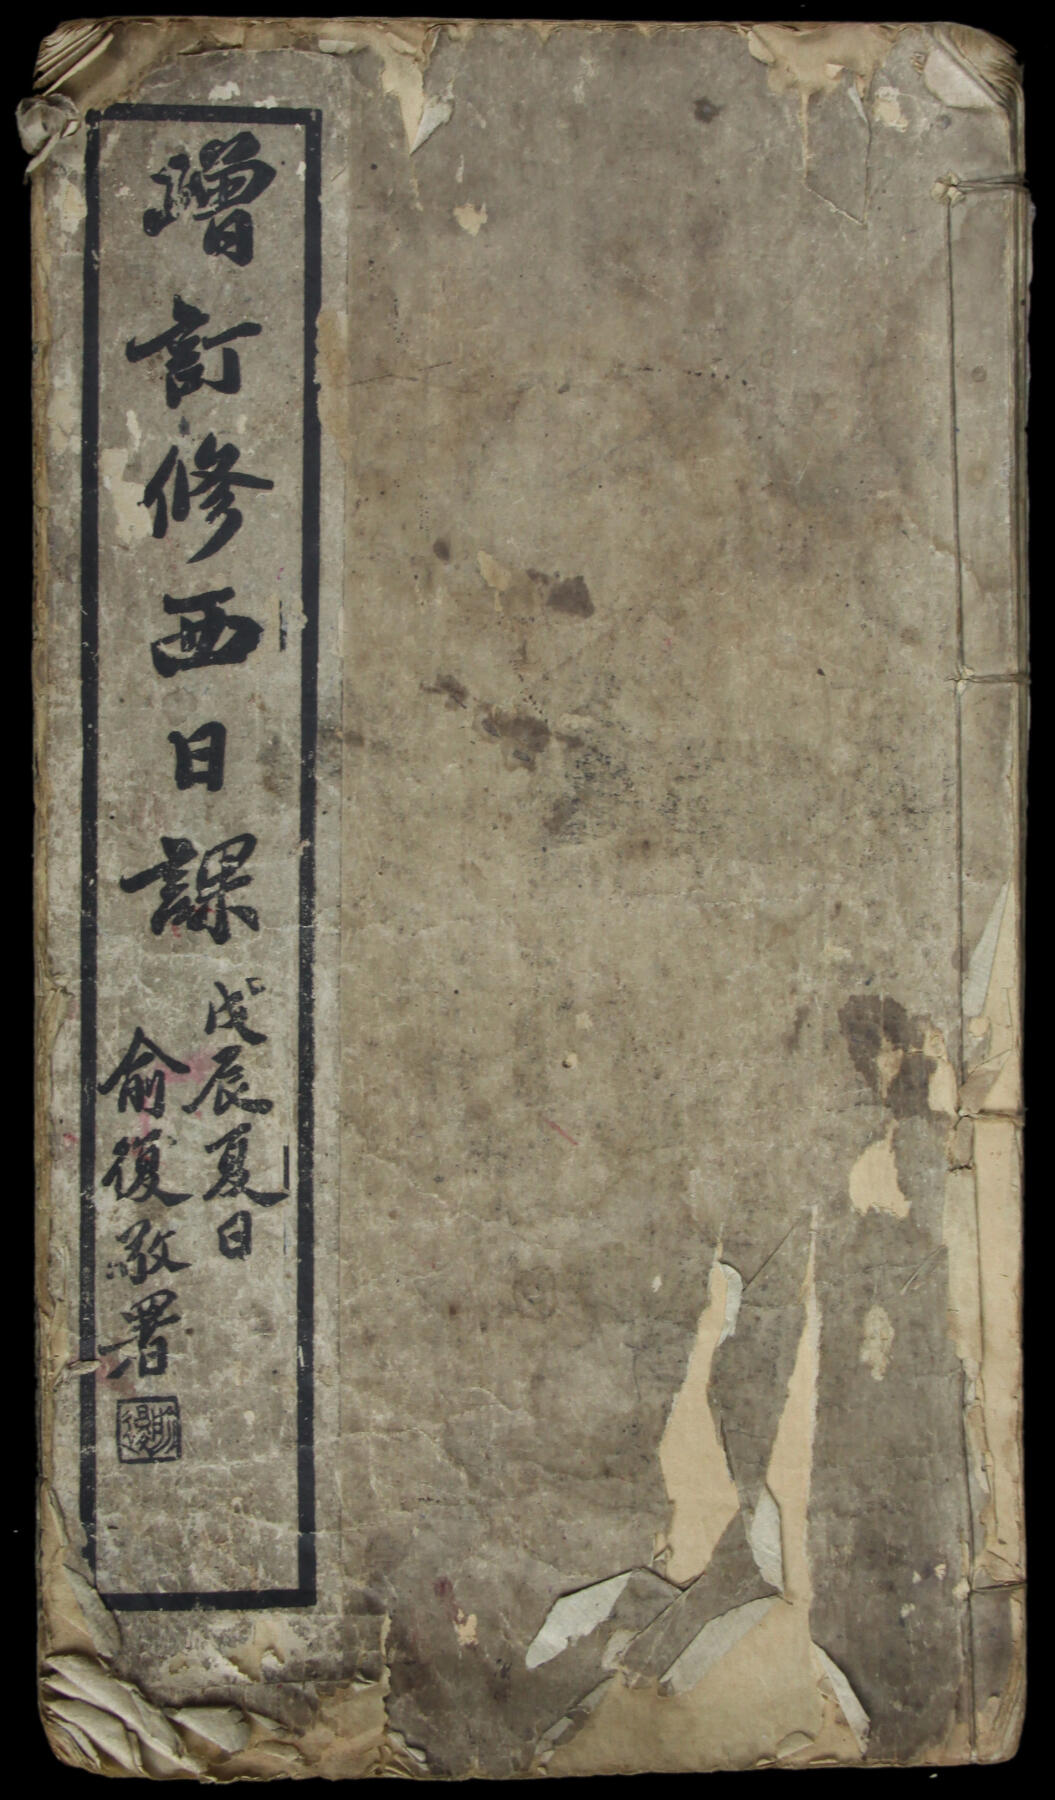 增訂修西日課
戊辰夏日
俞復敬署
俞復